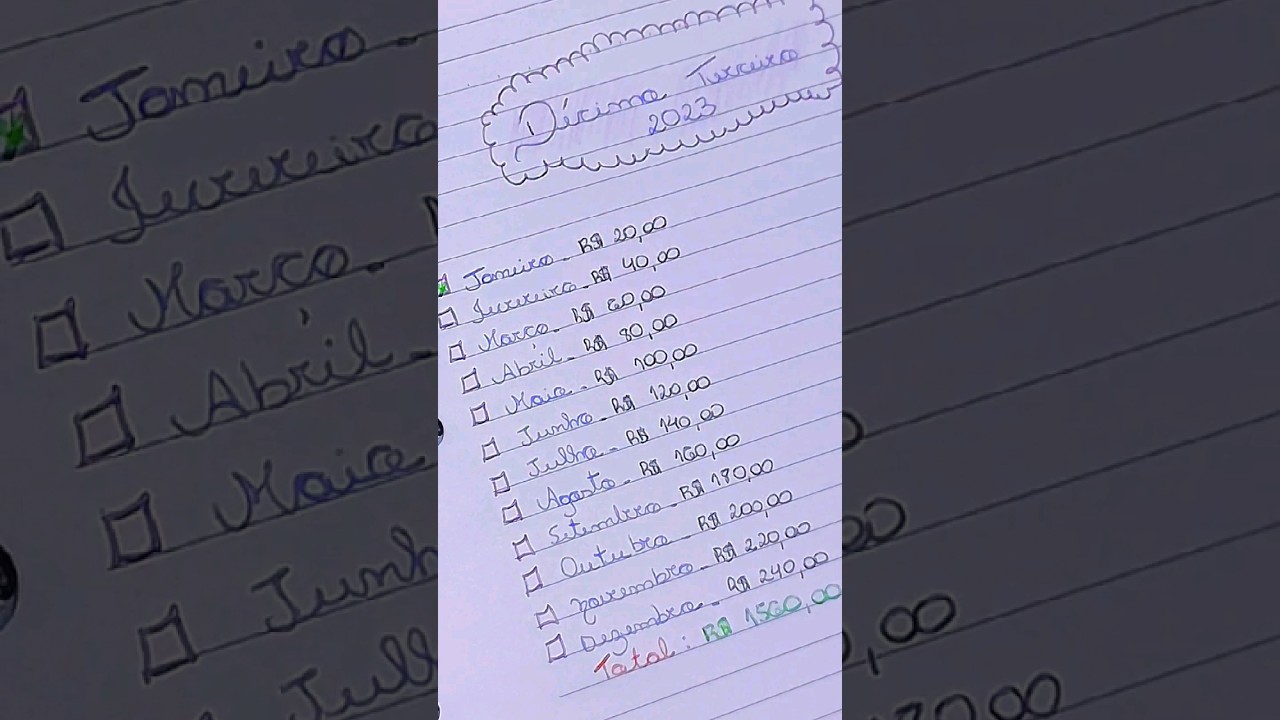 Décimo Terceiro
2023
Janeiro - R$ 20,00
Fevereiro - R$ 40,00
Março - R$ 60,00
Abril - R$ 80,00
Maio - R$ 100,00
Junho - R$ 120,00
Julho - R$ 140,00
Agosto - R$ 160,00
Setembro - R$
Outubro - R$ 200,00
Novembro - R$ 220,00
Dezembro - R$ 240,00
Total: R$ 1560,00